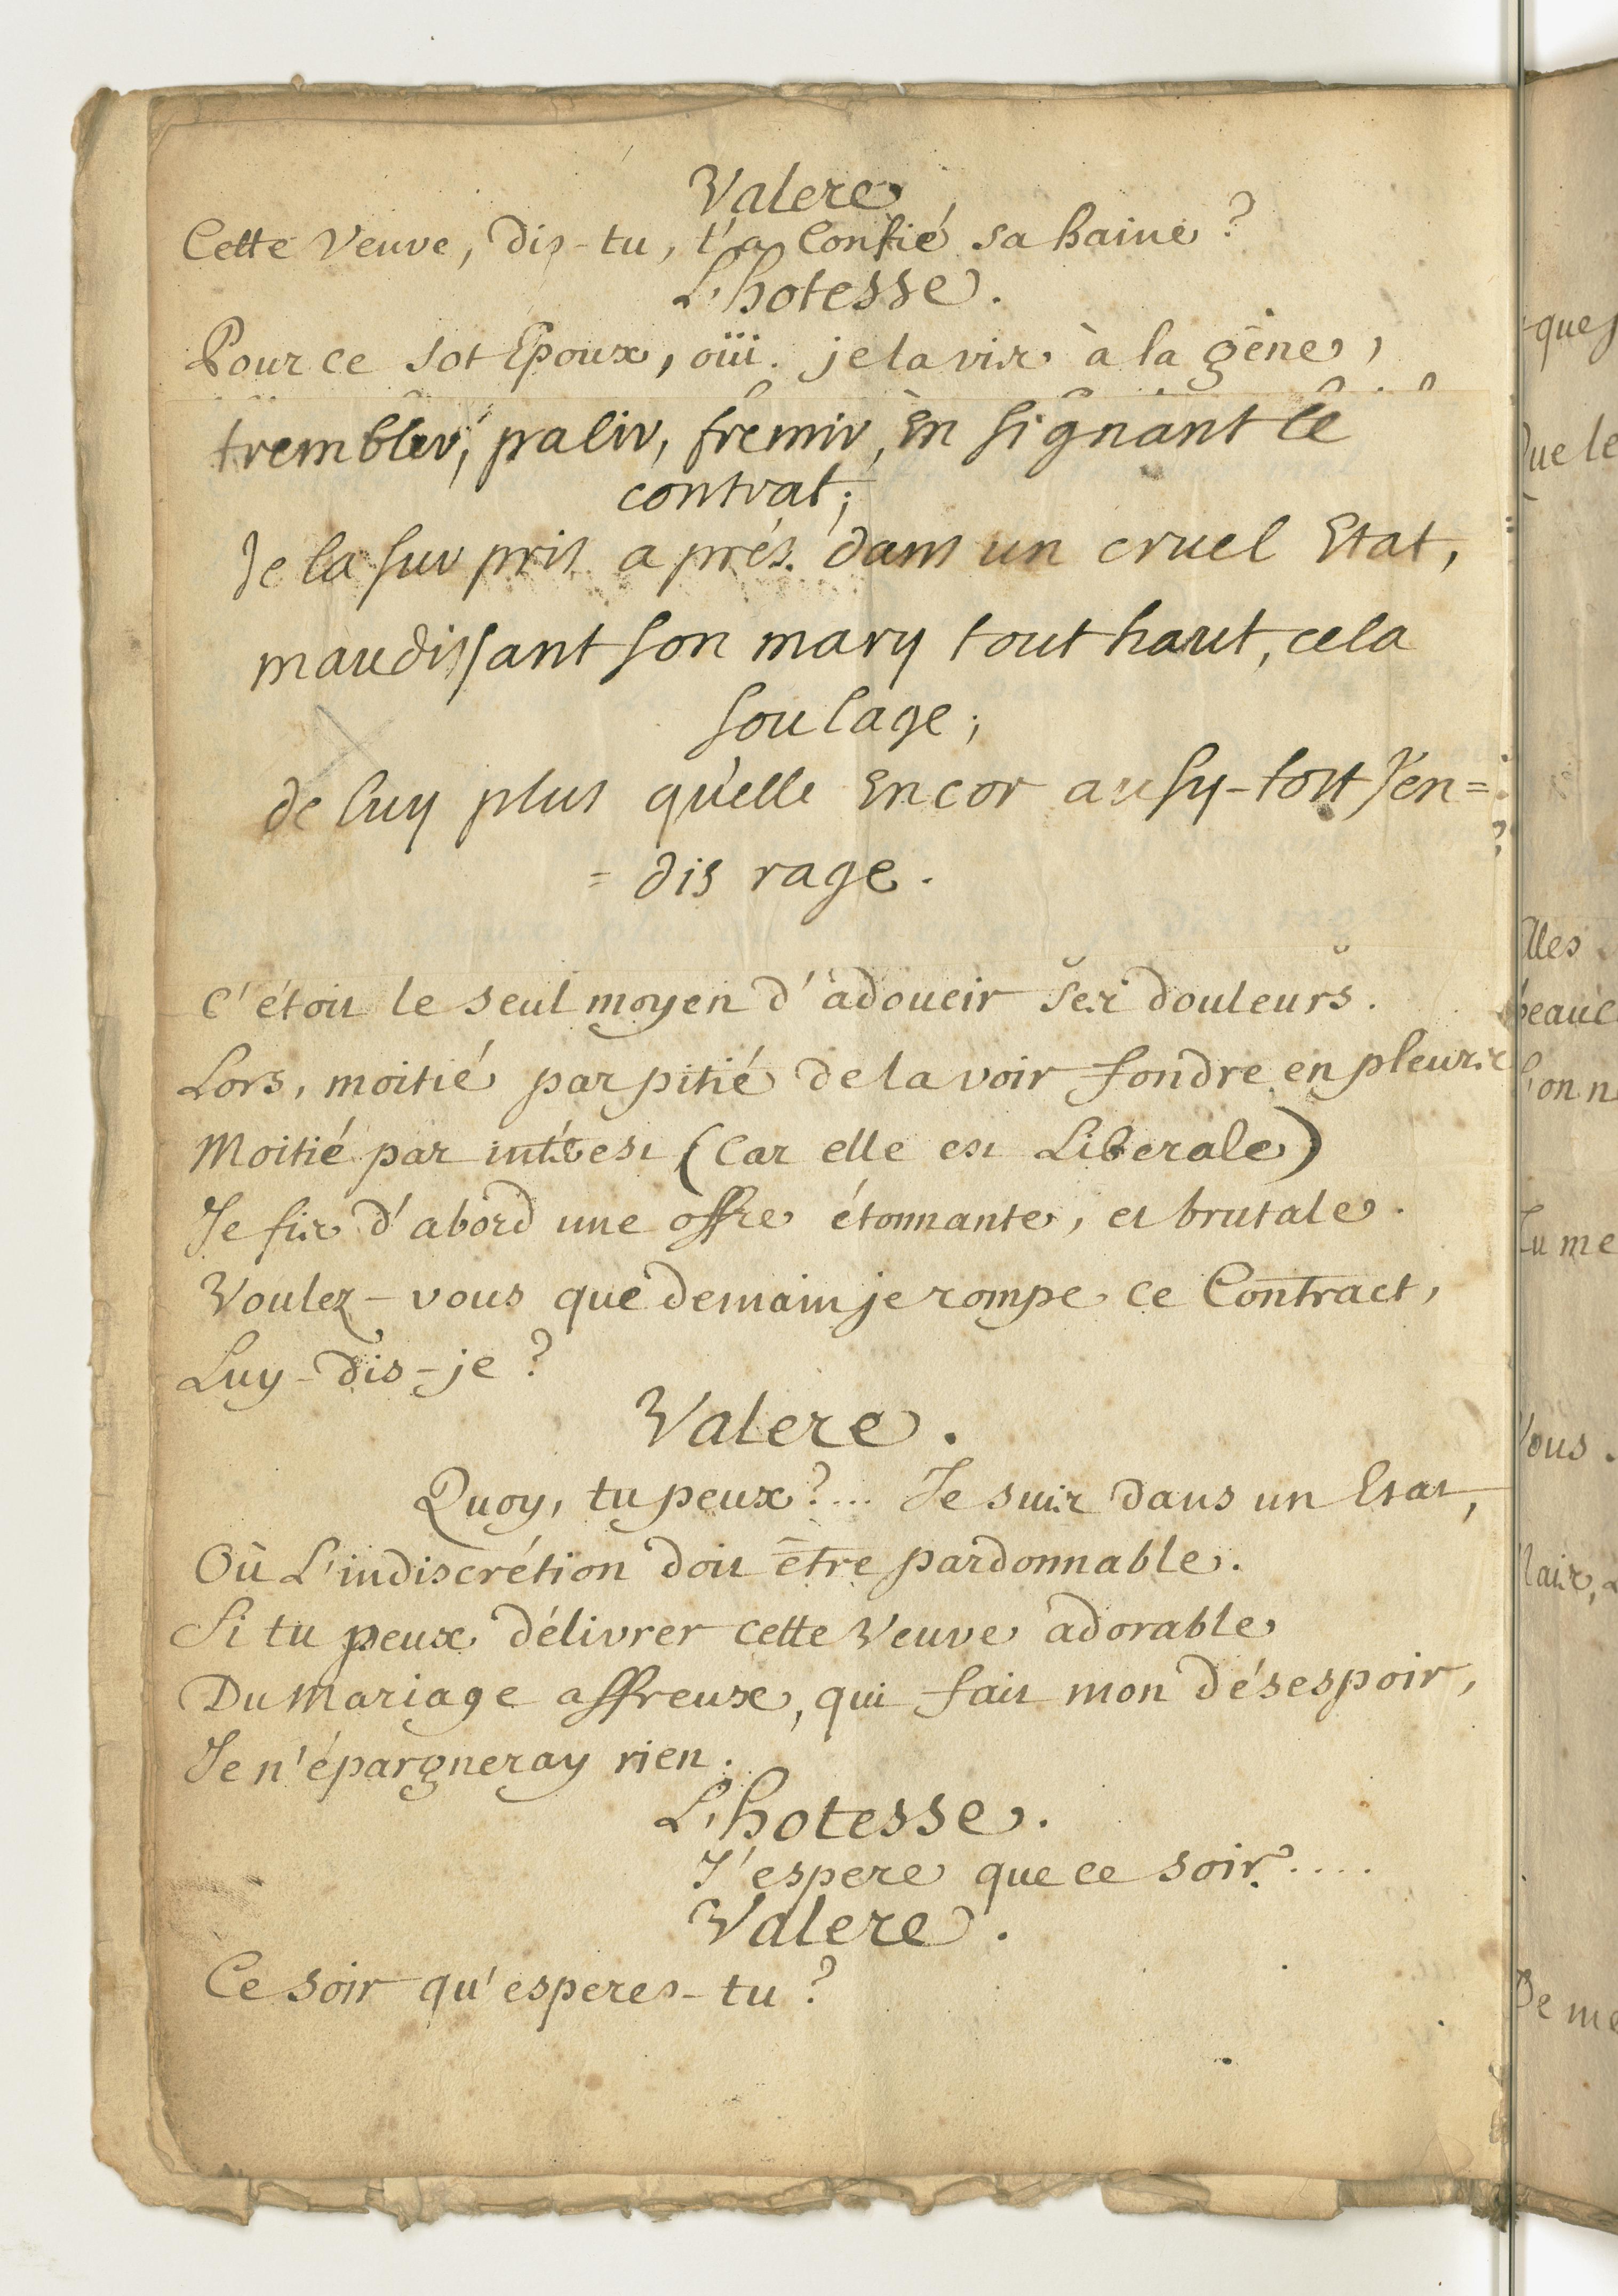 Valere
Cette Veuve, dis-tu, t'a Confié sa haine?
L'hotesse.
Pour ce sot Epoux, oüi. je la vis à la gêne,
trembler, palir, fremir, En signant le
contrat;
Je la surpris aprés. dans un cruel Etat,
maudissant son mary tout haut, cela
soulage;
de luy plus qu'elle Encor ausy-tost J'en=
=dis rage.
C'étoit le seul moyen d'adoucir ses douleurs.
Lors, moitié par pitié de la voir fondre en pleurs
Moitié par intérest (Car elle est Liberale)
Je fis d'abord une offre étonnante, et brutale.
Voulez-vous que demain je rompe ce Contract,
Luy-dis-je?
Valere.
Quoy, tu peux?... Je suis dans un Etat,
Où L'indiscrétion doit être pardonnable.
Si tu peux délivrer cette Veuve adorable
Du Mariage affreux, qui fait mon désespoir,
Je n'épargneray rien.
L'hotesse.
J'espere que ce soir....
Valere.
Ce soir qu'esperes-tu?